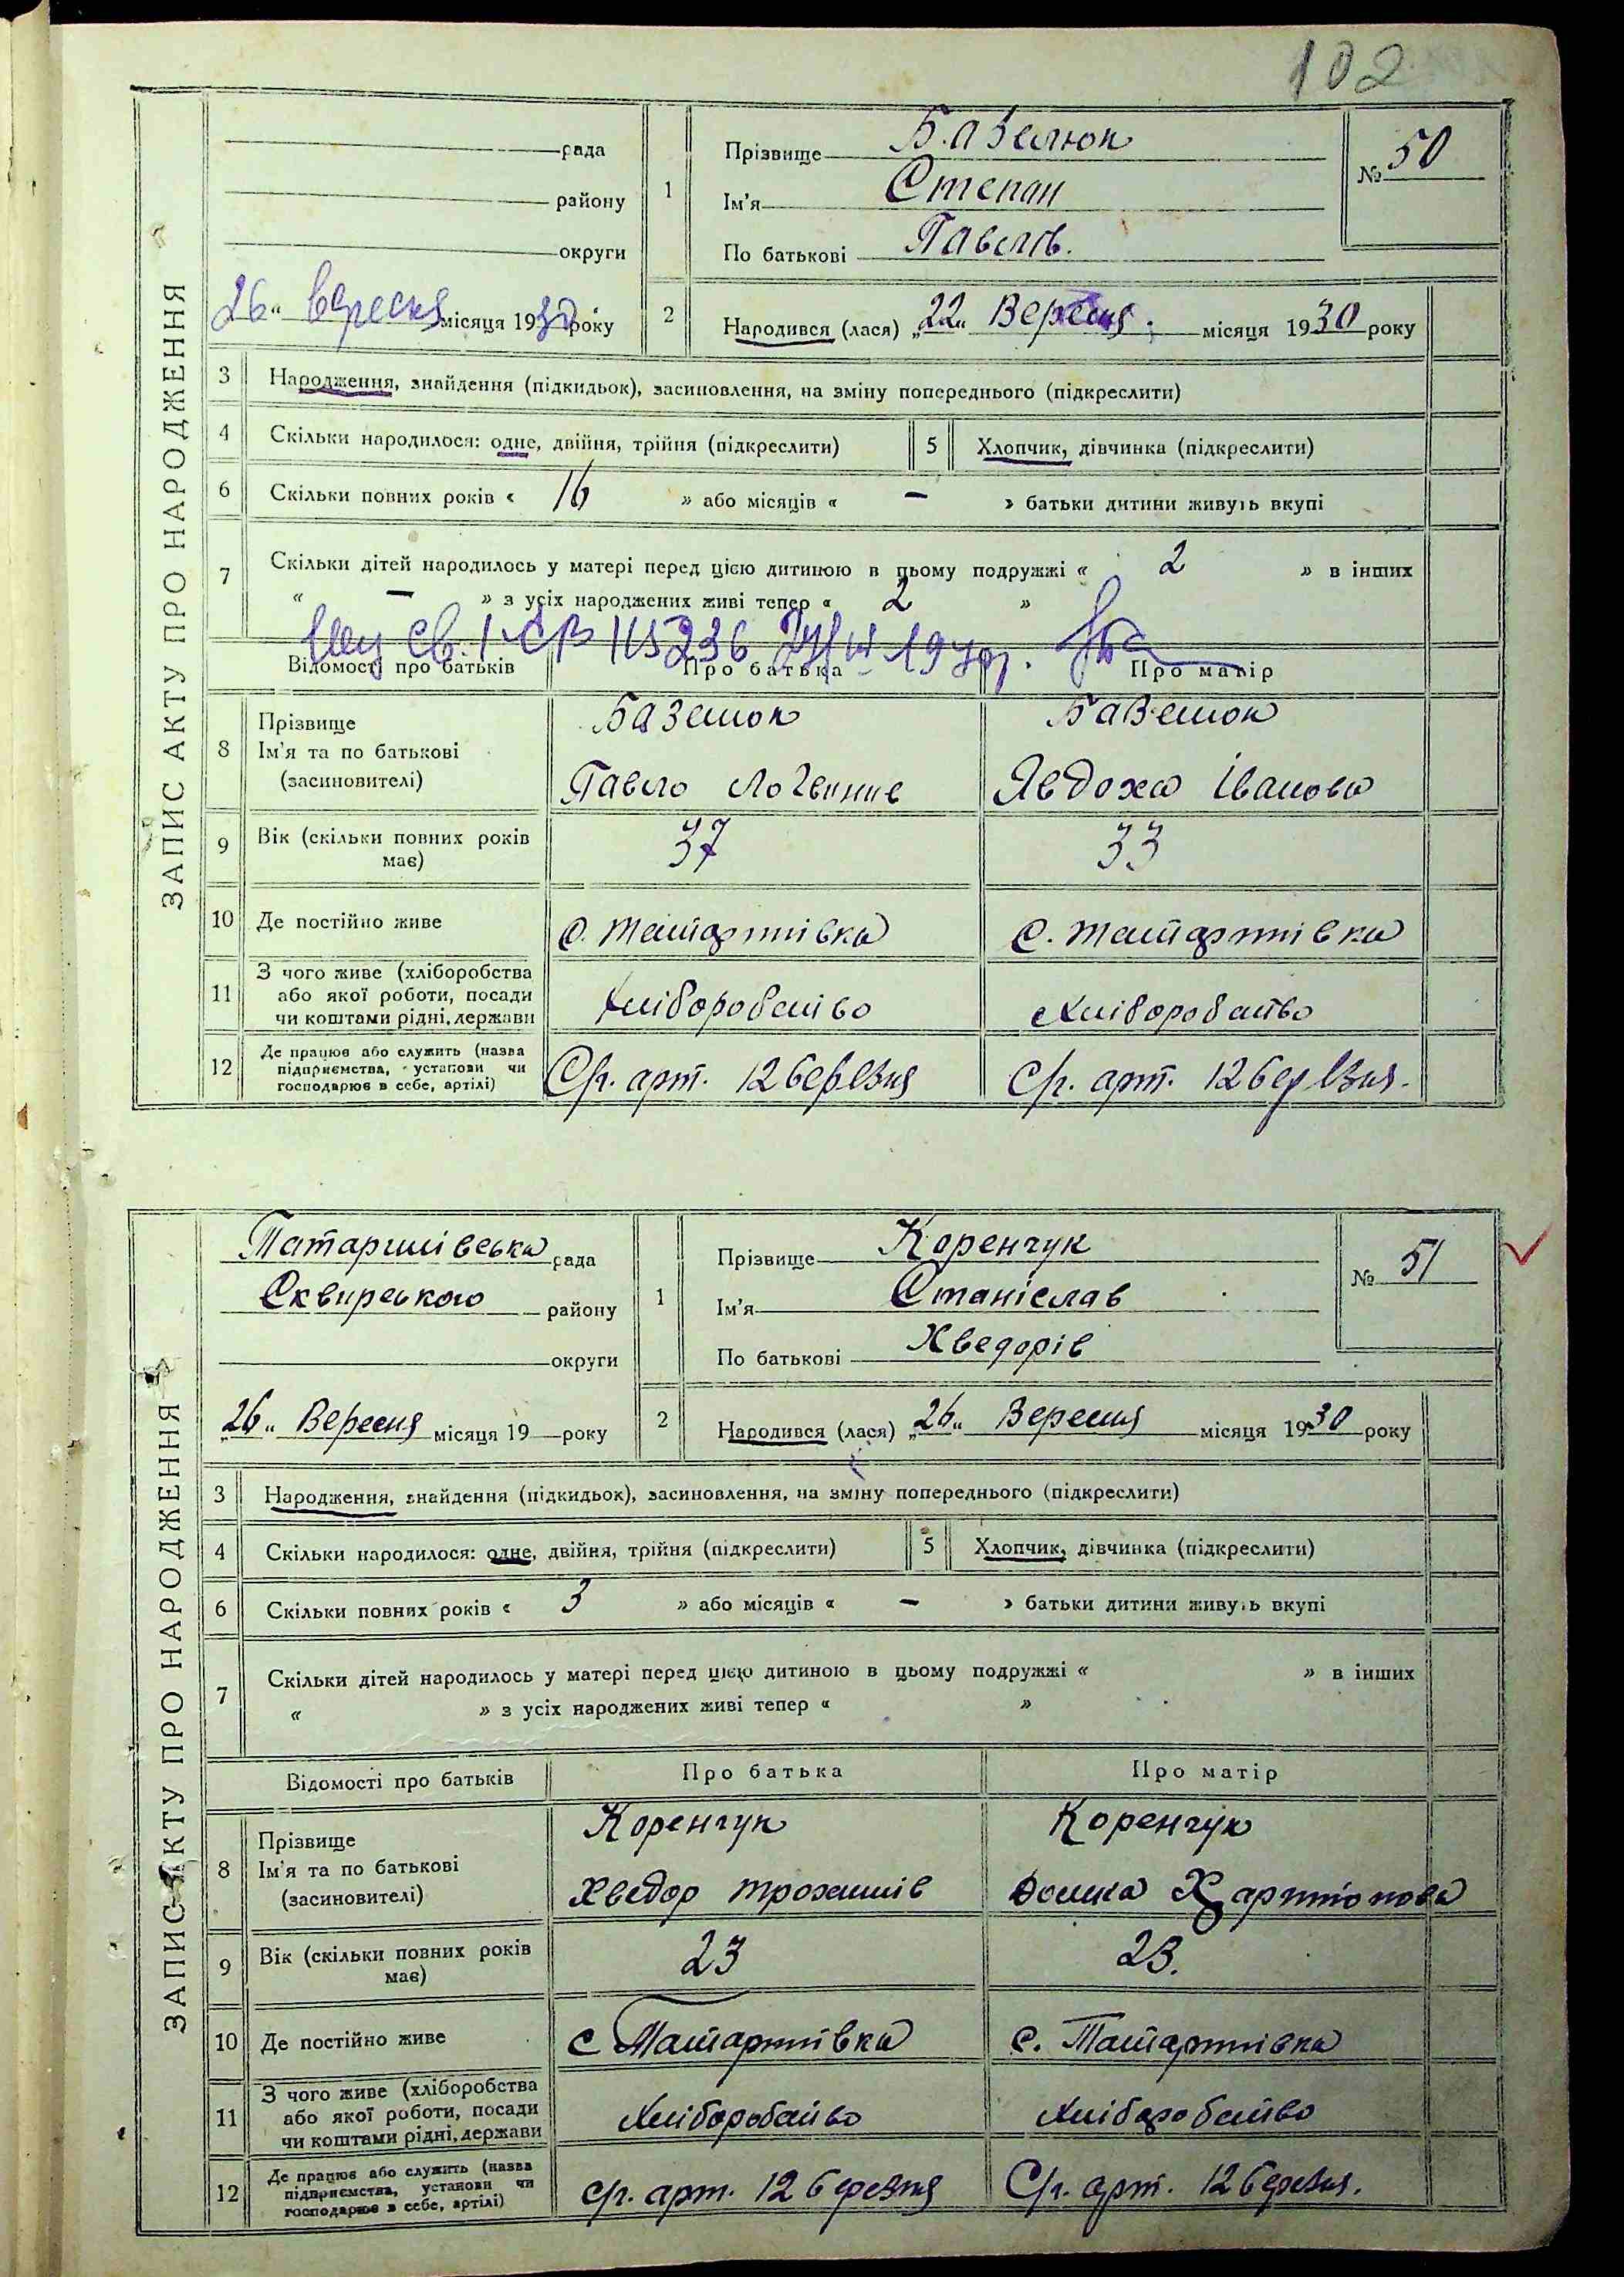 102
ЗАПИС АКТУ ПРО НАРОДЖЕННЯ
рада
району
округи
26 вересня місяця 1930 року
1
Прізвище Базелюк
Ім'я Степан
По батькові Павлів.
№ 50
2
Народився (лася) „22" Вересня місяця 1930 року
3 Народження, знайдення (підкидьок), засиновлення, на зміну попереднього (підкреслити)
4 Скільки народилося: одне, двійня, трійня (підкреслити) 5 Хлопчик, дівчинка (підкреслити)
6 Скільки повних років « 16 » або місяців « — » батьки дитини живуть вкупі
7 Скільки дітей народилось у матері перед цією дитиною в цьому подружжі « 2 » в інших
« — » з усіх народжених живі тепер « 2 »
Відомості про батьків Про батька Про матір
8 Прізвище Базелюк Базелюк
Ім'я та по батькові
(засиновителі) Павло Логвинів Явдоха Іванова
9 Вік (скільки повних років має) 37 33
10 Де постійно живе с. Татаринівка с. Татаринівка
11 З чого живе (хліборобства
або якої роботи, посади Хліборобство Хліборобство
чи коштами рідні, держави
12 Де працює або служить (назва
підприємства, установи чи С/г. арт. 12 березня С/г. арт. 12 березня.
господарює в себе, артілі)
ЗАПИС АКТУ ПРО НАРОДЖЕННЯ
Татаринівська рада
Сквирського району
округи
„26" Вересня місяця 19 року
1
Прізвище Коренчук
Ім'я Станіслав
По батькові Хведорів
№ 51
2
Народився (лася) „26" Вересня місяця 1930 року
3 Народження, знайдення (підкидьок), засиновлення, на зміну попереднього (підкреслити)
4 Скільки народилося: одне, двійня, трійня (підкреслити) 5 Хлопчик, дівчинка (підкреслити)
6 Скільки повних років « 3 » або місяців « — » батьки дитини живуть вкупі
7 Скільки дітей народилось у матері перед цією дитиною в цьому подружжі « » в інших
« » з усіх народжених живі тепер « »
Відомості про батьків Про батька Про матір
8 Прізвище Коренчук Коренчук
Ім'я та по батькові
(засиновителі) Хведор Трохимів Домка Харитонова
9 Вік (скільки повних років має) 23 23.
10 Де постійно живе с Татаринівка с. Татаринівка
11 З чого живе (хліборобства
або якої роботи, посади Хліборобство Хліборобство
чи коштами рідні, держави
12 Де працює або служить (назва
підприємства, установи чи с/г. арт. 12 березня С/г. арт. 12 березня.
господарює в себе, артілі)